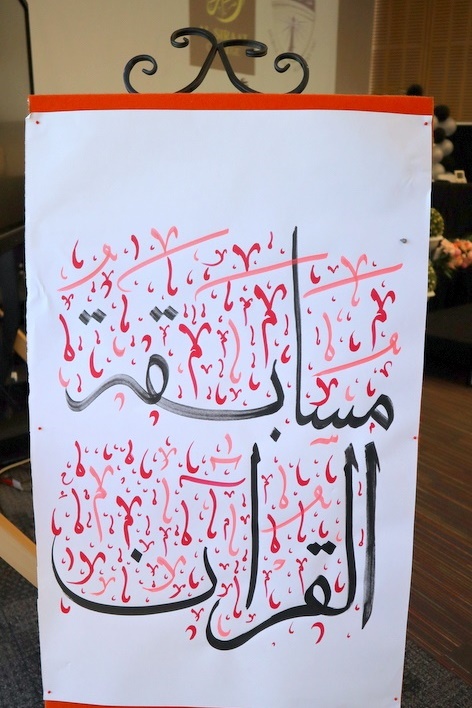 مسابقة
القرآن